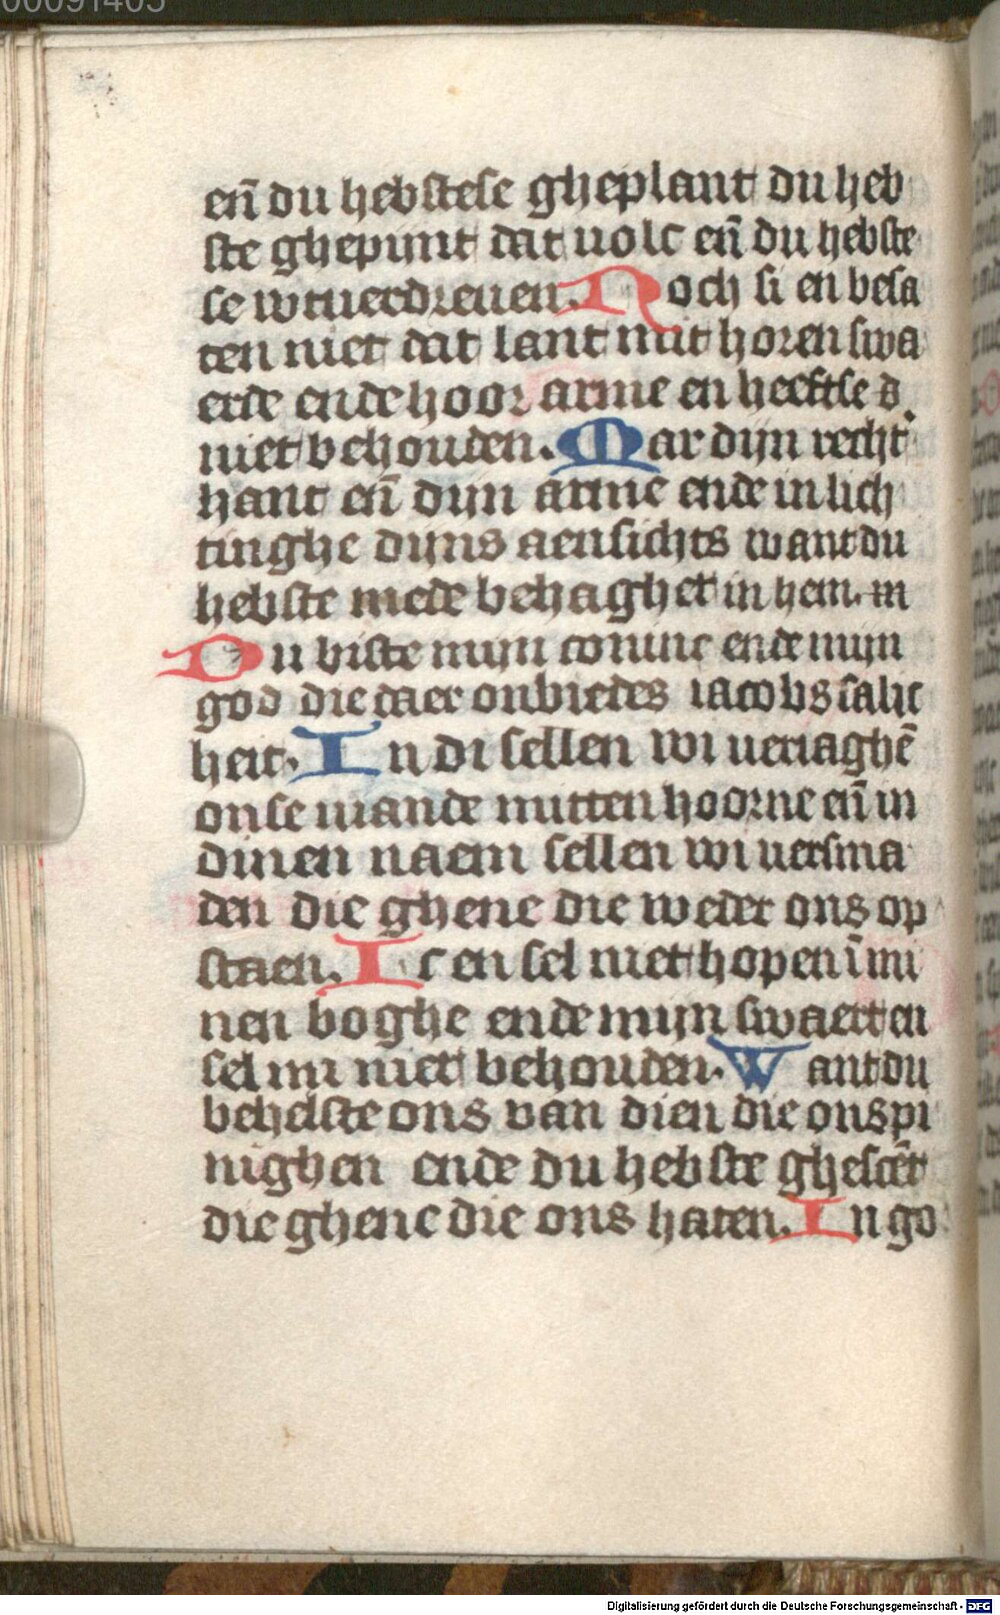 00091405
en̄ du hebstese gheplant du heb
ste ghepijnt dat uolc en̄ du hebste
se wtuerdreuen. Noch si en besa
ten niet dat lant mit horen swa
erde ende hoor arme en heeftse d
niet behouden. Mar dijn recht
hant en̄ dijn arme ende in lich
tinghe dijns aensichts want du
hebste mede behaghet in hem. in
Du biste mijn coninc ende mijn
god die daer onbiedes iacobs salic
heit. In di sellen wi ueriaghē
onse uiande mitten hoorne en̄ in
dinen naem sellen wi uersma
den die ghene die weder ons op
staen. Ic en sel niet hopen ī mi
nen boghe ende mijn swaert en
sel mi niet behouden. Want du
behelste ons van dien die ons pi
nighen ende du hebste ghescēt
die ghene die ons haten. In go
Digitalisierung gefördert durch die Deutsche Forschungsgemeinschaft - DFG